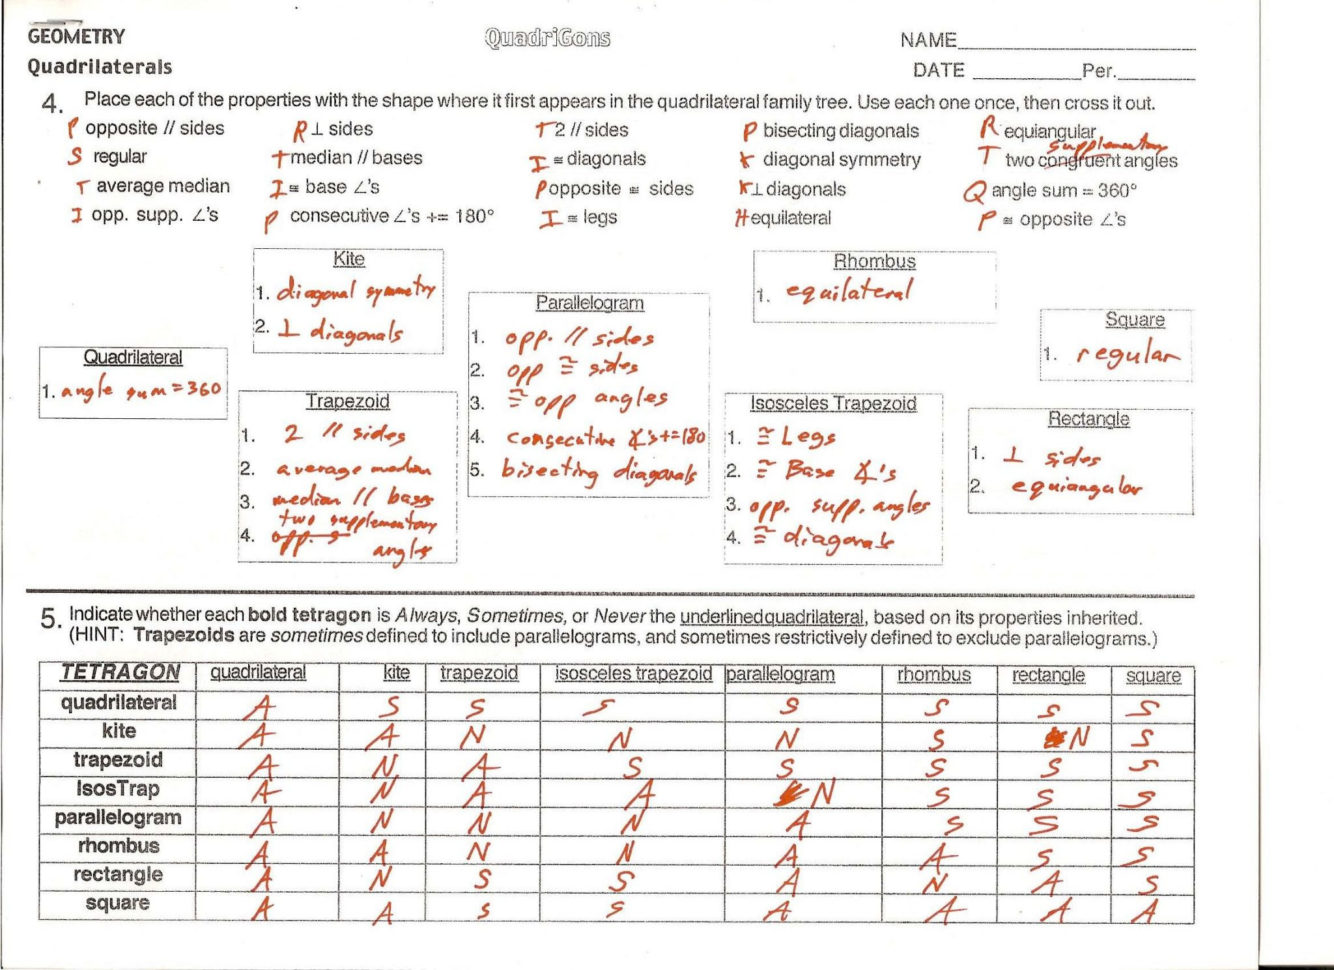 GEOMETRY
QuadriGons
NAME
Quadrilaterals
DATE Per.
4. Place each of the properties with the shape where it first appears in the quadrilateral family tree. Use each one once, then cross it out.
P opposite // sides
R ⊥ sides
T 2 // sides
P bisecting diagonals
R equiangular
S regular
T median // bases
I ≅ diagonals
K diagonal symmetry
supplementary
T two congruent angles
T average median
I ≅ base ∠'s
P opposite ≅ sides
K ⊥ diagonals
Q angle sum = 360°
I opp. supp. ∠'s
P consecutive ∠'s += 180°
I ≅ legs
H equilateral
P ≅ opposite ∠'s
Kite
1. diagonal symmetry
2. ⊥ diagonals
Rhombus
1. equilateral
Parallelogram
1. opp. // sides
2. opp ≅ sides
3. ≅ opp angles
4. consecutive ∡'s += 180
5. bisecting diagonals
Square
1. regular
Quadrilateral
1. angle sum = 360
Trapezoid
1. 2 // sides
2. average median
3. median // bases
two supplementary
4. opp. s angles
Isosceles Trapezoid
1. ≅ Legs
2. ≅ Base ∡'s
3. opp. supp. angles
4. ≅ diagonals
Rectangle
1. ⊥ sides
2. equiangular
5. Indicate whether each bold tetragon is Always, Sometimes, or Never the underlined quadrilateral, based on its properties inherited.
(HINT: Trapezoids are sometimes defined to include parallelograms, and sometimes restrictively defined to exclude parallelograms.)
TETRAGON quadrilateral kite trapezoid isosceles trapezoid parallelogram rhombus rectangle square
quadrilateral A S S S S S S S
kite A A N N N S N S
trapezoid A N A S S S S S
IsosTrap A N A A N S S S
parallelogram A N N N A S S S
rhombus A A N N A A S S
rectangle A N S S A N A S
square A A S S A A A A